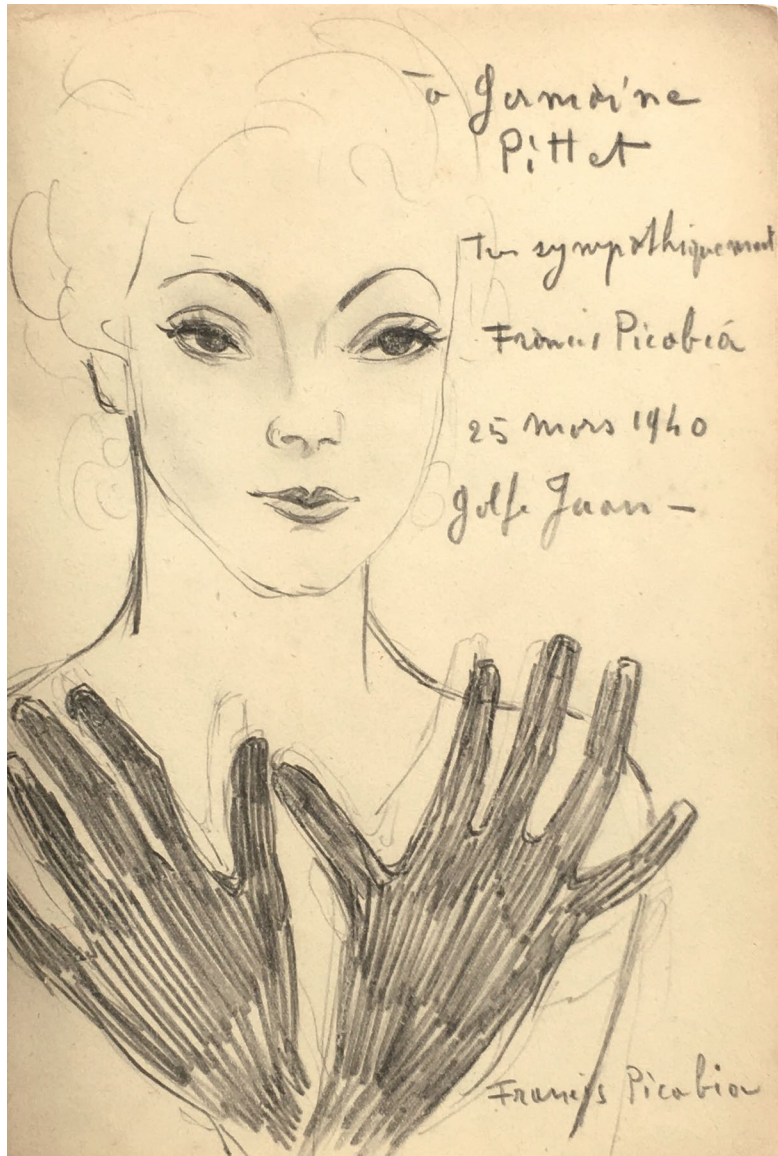 To Germaine
Pittet
Très sympathiquement
Francis Picabia
25 mars 1940
Golfe Juan —
Francis Picabia